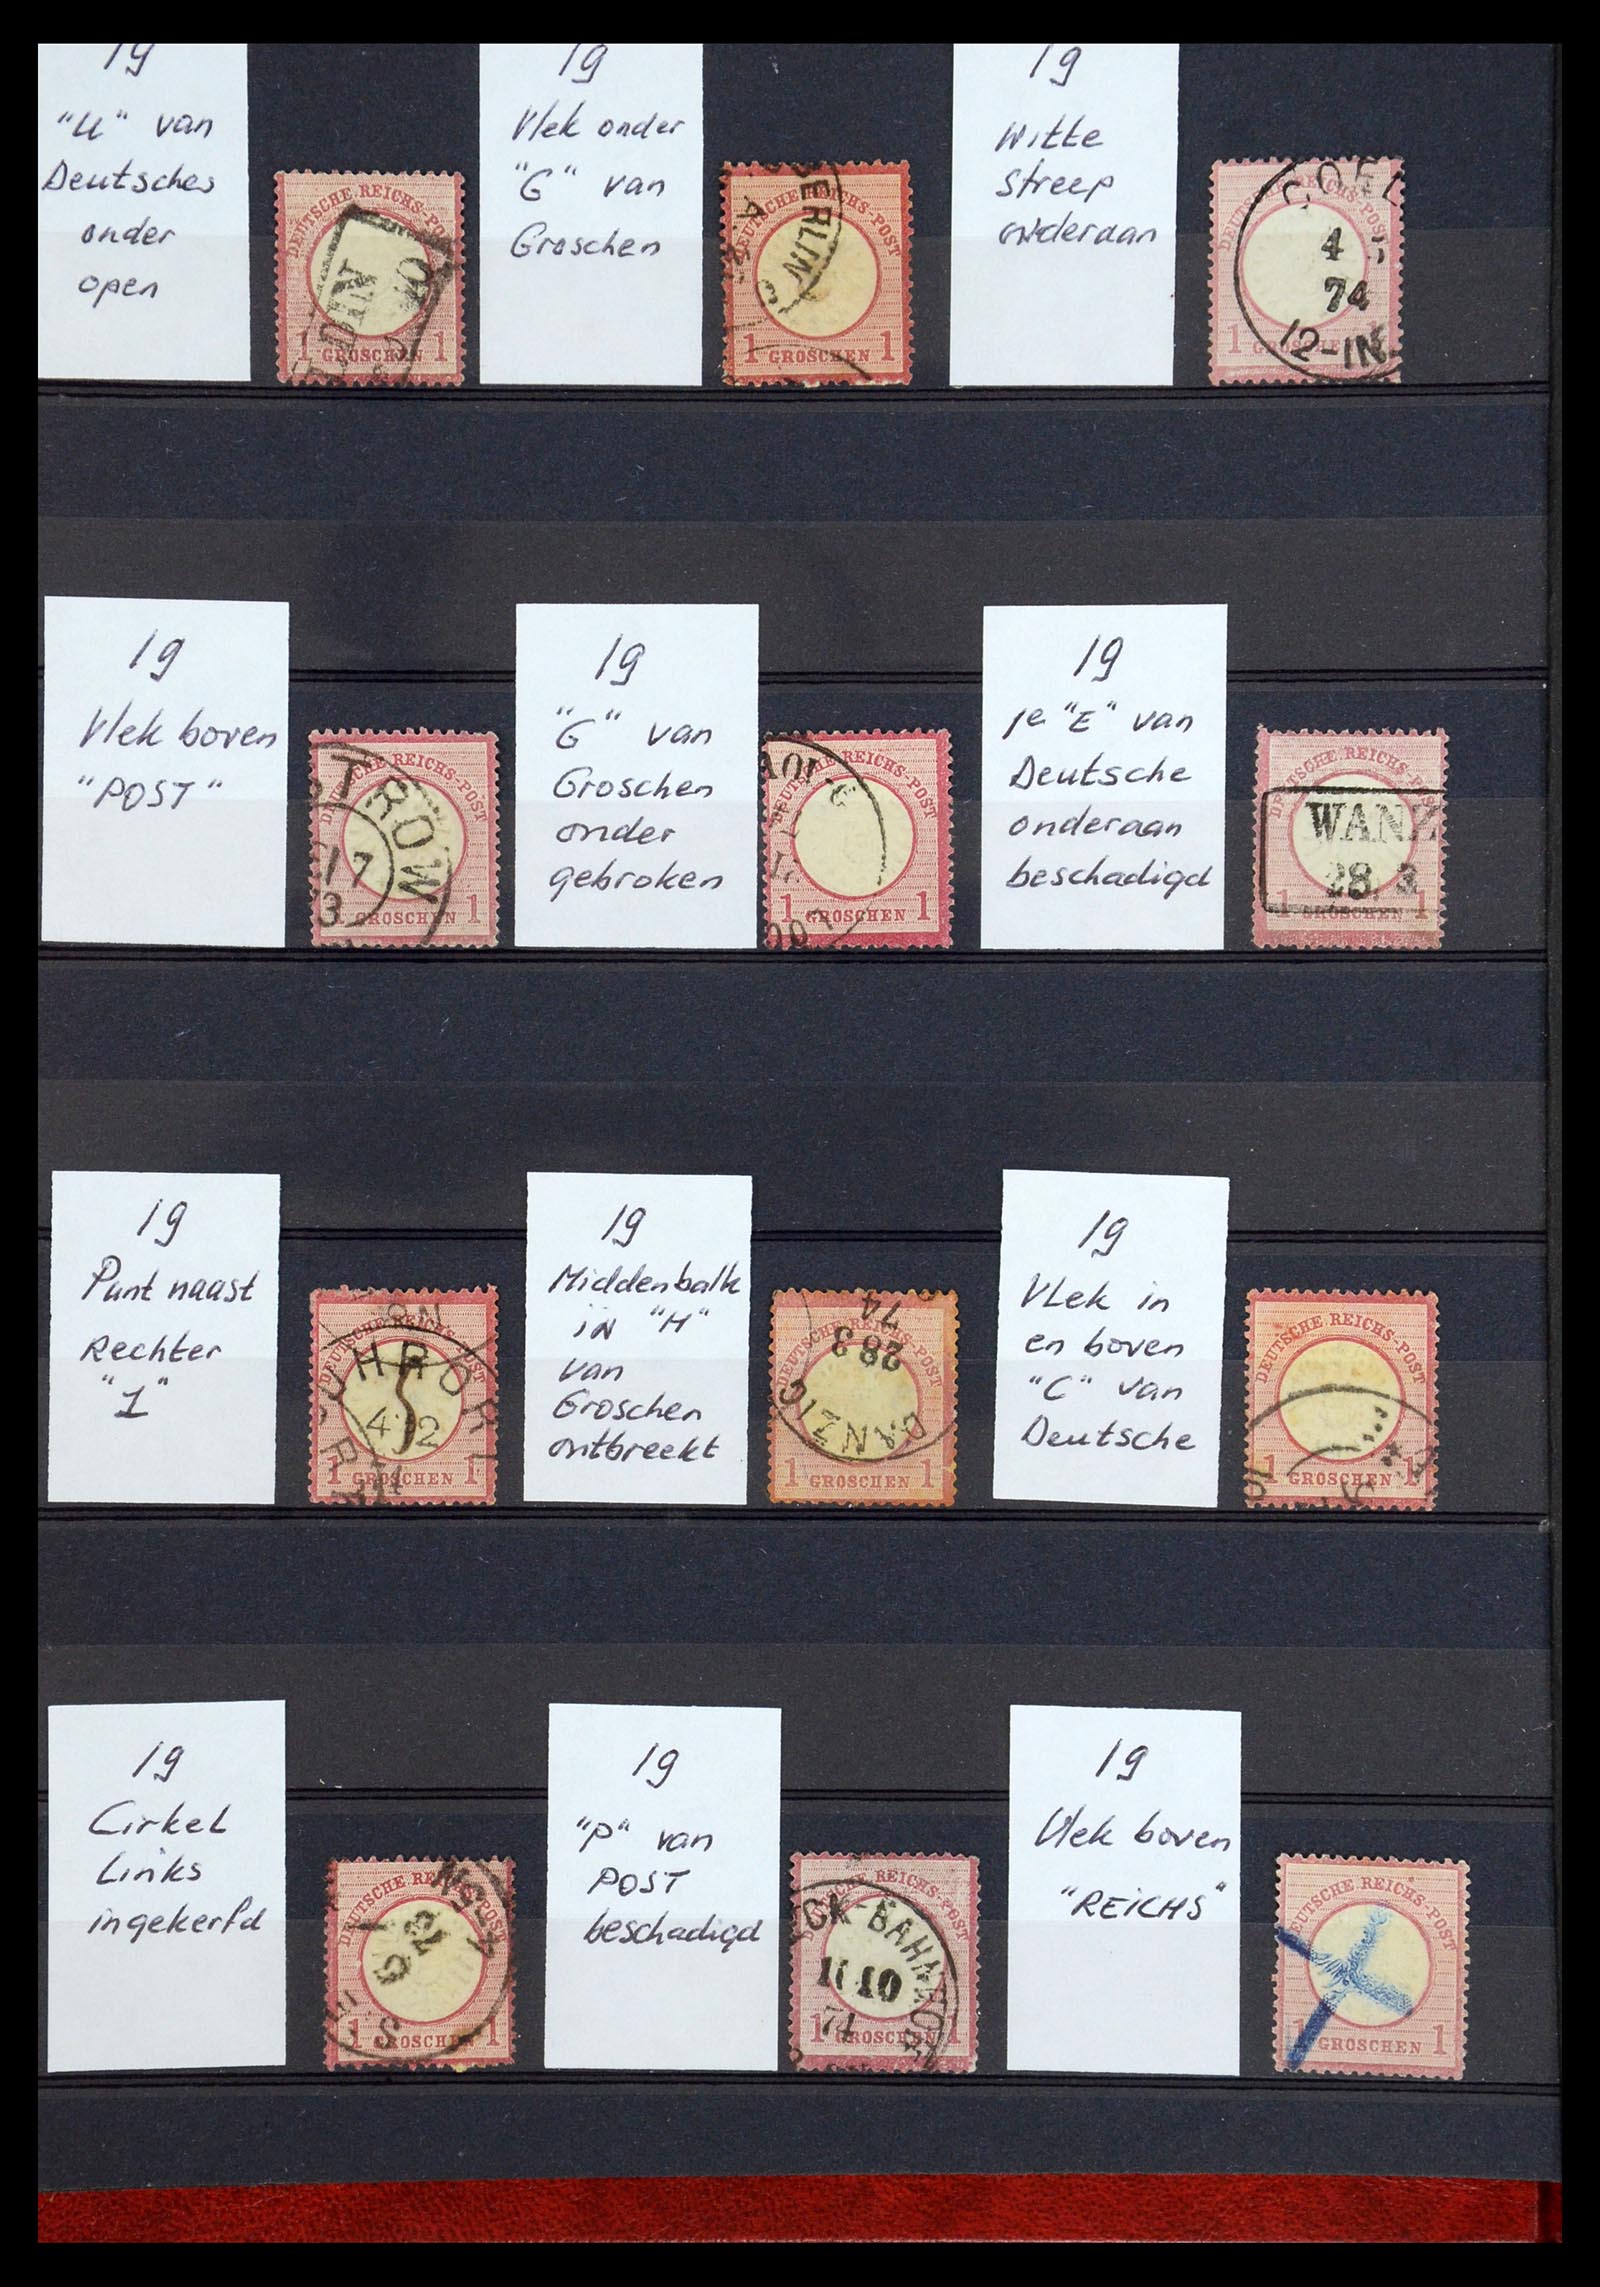 19
"U" van
Deutsches
onder
open
DEUTSCHE REICHS-POST
1 GROSCHEN 1
19
Vlek onder
"G" van
Groschen
DEUTSCHE REICHS-POST
BERLIN
1 GROSCHEN 1
19
Witte
streep
onderaan
4
74
12-1N
1
19
Vlek boven
"POST"
REICHS-POST
TROW
17
GROSCHEN 1
19
"G" van
Groschen
onder
gebroken
DEUTSCHE REICHS-POST
1 GROSCHEN 1
19
1e "E" van
Deutsche
onderaan
beschadigd
DEUTSCHE REICHS-POST
WANZ
28. 3
1 GROSCHEN 1
19
Punt naast
Rechter
"1"
DEUTSCHE REICHS-POST
UHRORT
4 12
1 GROSCHEN 1
19
Middenbalk
in "H"
van
Groschen
ontbreekt
DEUTSCHE REICHS-POST
DANZIG
28 3
74
1 GROSCHEN 1
19
Vlek in
en boven
"C" van
Deutsche
DEUTSCHE REICHS-POST
1 GROSCHEN 1
19
Cirkel
Links
ingekerfd
DEUTSCHE REICHS-POST
1 GROSCHEN 1
19
"P" van
POST
beschadigd
REICHS-POST
CK-BAHNHOF
11 10
74
1 GROSCHEN 1
19
Vlek boven
"REICHS"
DEUTSCHE REICHS-POST
GROSCHEN 1